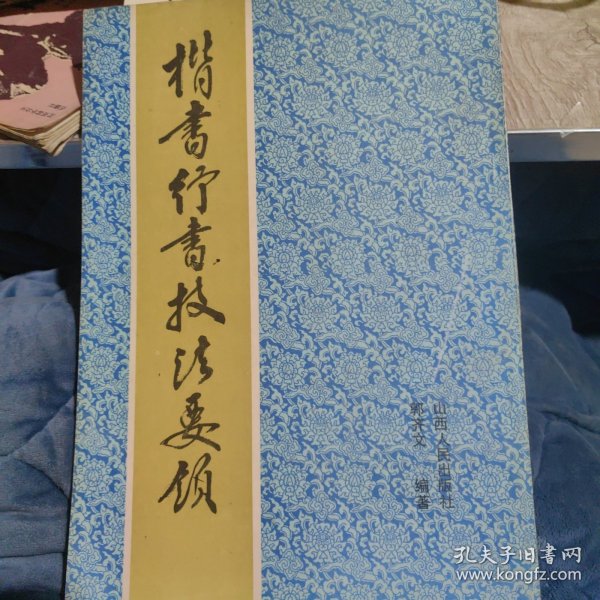 楷书行书技法要领
山西人民出版社
郭齐文 编著
孔夫子旧书网
www.kongfz.com